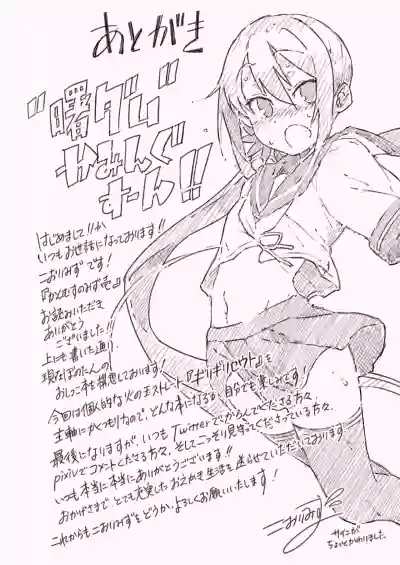 あとがき
"曙ダい"
かみんぐ
すーん!!
はじめまして!!か
いつもお世話になっております!!
こおりみずです!
お読みいただき
ありがとう
ございました!!
上にも書いた通り、
現在ぼのたんの
おしっこ本を構想しております!
今回は個人的な火の玉ストレート『ギリギリアウト』を
主軸にかくつもりなので、どんな本になるか自分でも楽しみです!
最後になりますが、いつもTwitterでからんでくださる方々、
pixivでコメントくださる方々、そしてこっそり見守ってくださっている方々、
いつも本当に本当にありがとうございます!!
おかげさまで、とても充実したおえかき生活を送らせていただいております
これからもこおりみずをどうか、よろしくお願いいたします!
こおりみず
サインが
ちょっとかわりました